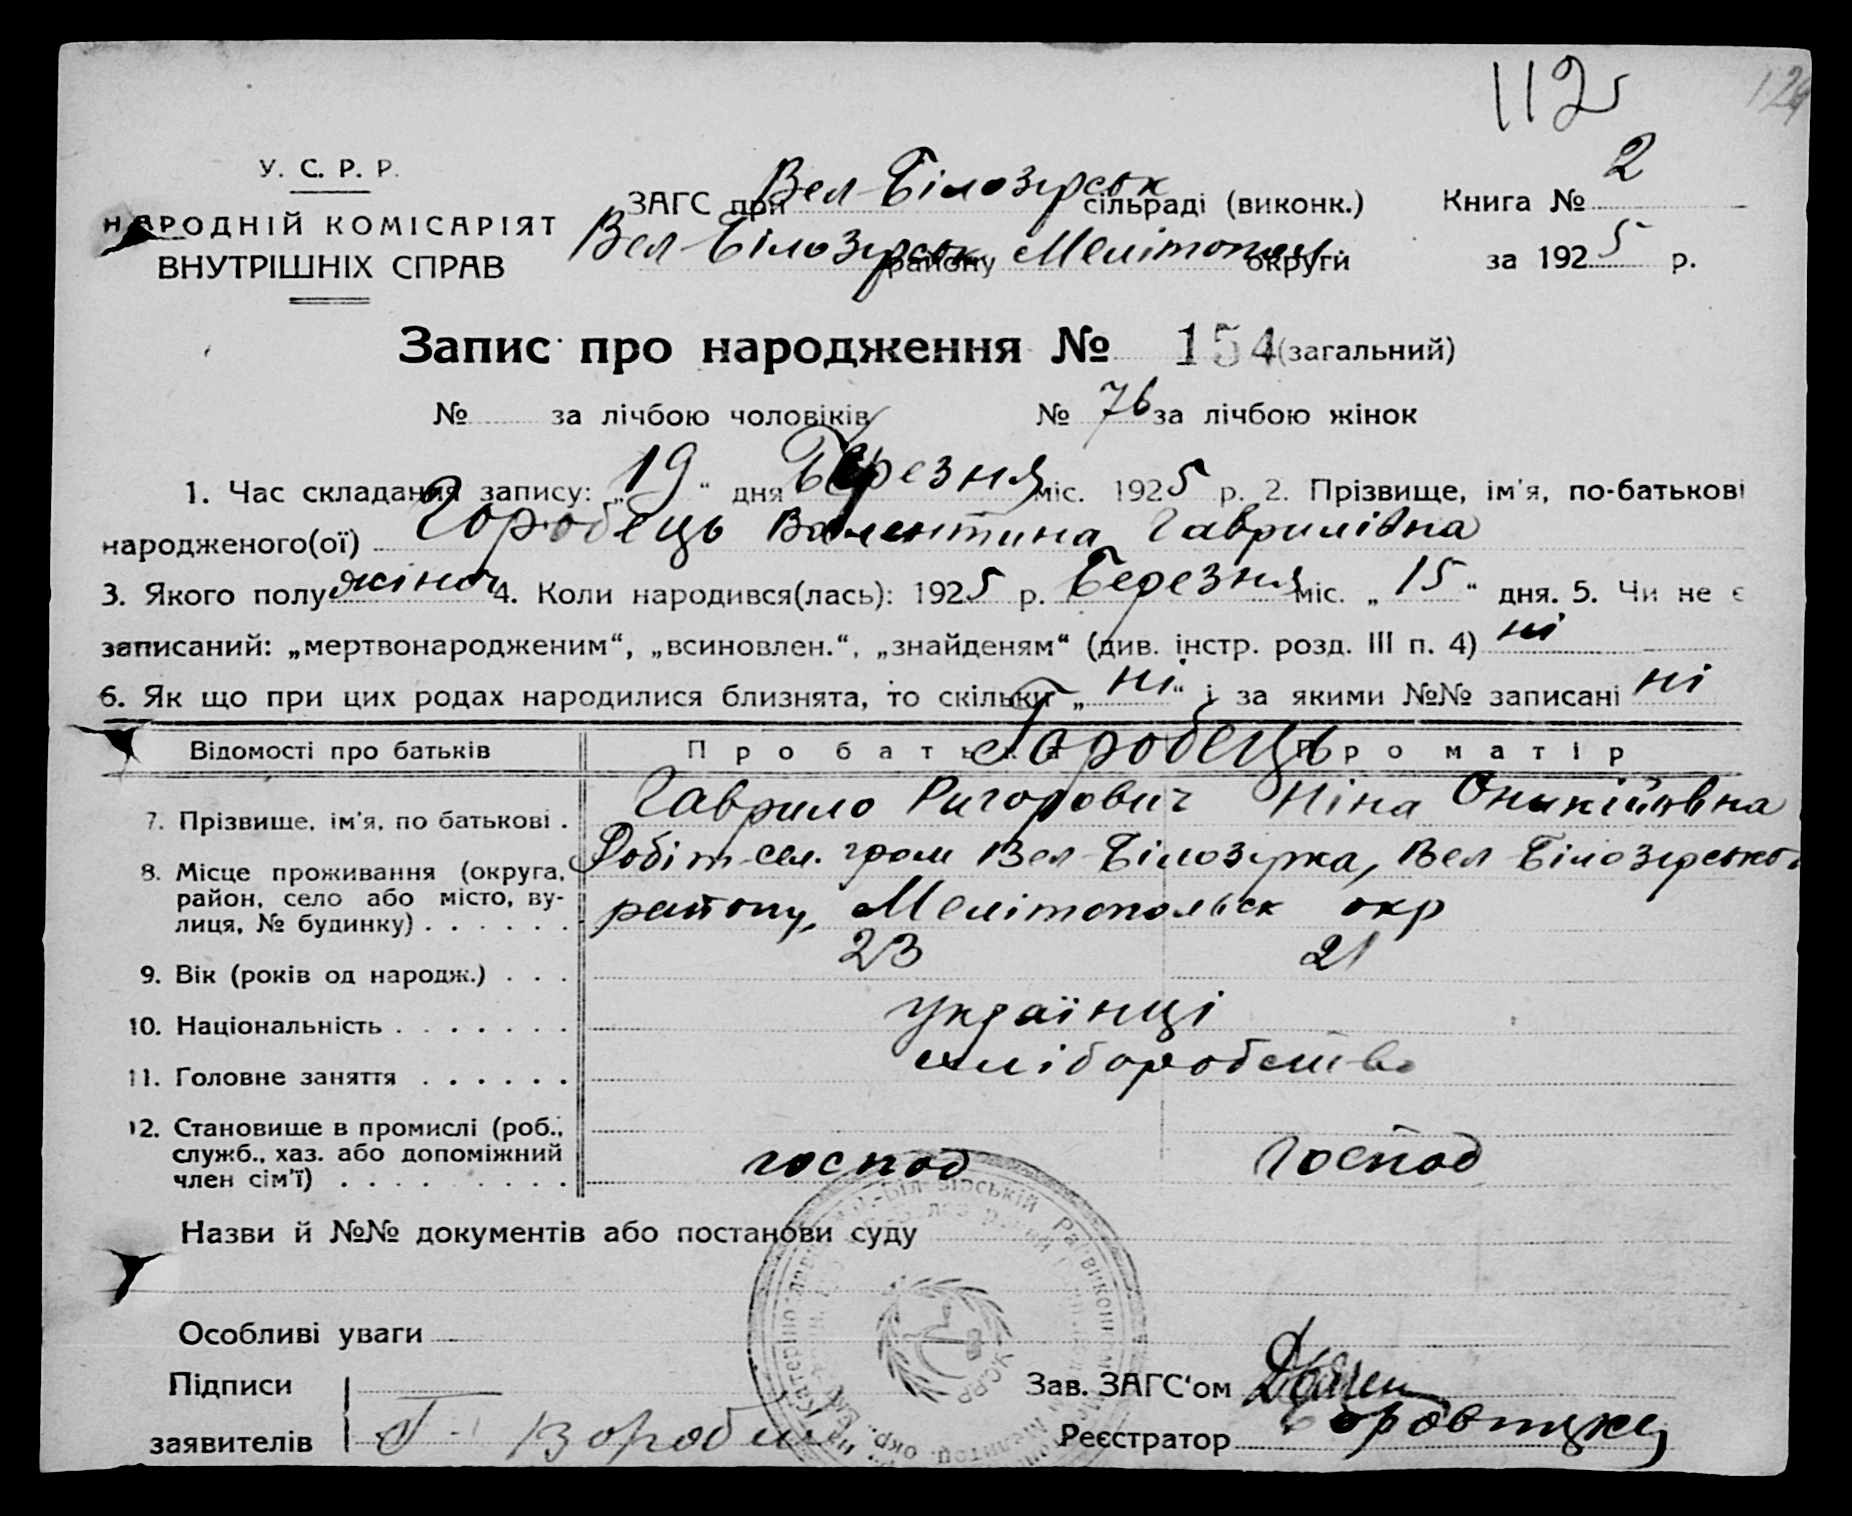 112
124
У. С. Р. Р.
НАРОДНІЙ КОМІСАРІЯТ
ВНУТРІШНІХ СПРАВ
ЗАГС при Вел-Білозірськ сільраді (виконк.)
Вел-Білозірськ району Мелітопол округи
Книга № 2
за 1925 р.
Запис про народження № 154 (загальний)
№ за лічбою чоловіків № 76 за лічбою жінок
1. Час складання запису: „19“ дня Березня міс. 1925 р. 2. Прізвище, ім'я, по-батькові
народженого(ої) Горобець Валентина Гаврилівна
3. Якого полу жіноч 4. Коли народився(лась): 1925 р. Березня міс. „15“ дня. 5. Чи не є
записаний: „мертвонародженим“, „всиновлен.“, „знайденям“ (див. інстр. розд. III п. 4) ні
6. Як що при цих родах народилися близнята, то скільки „ні“ і за якими №№ записані ні
Відомості про батьків Про батька Про матір
Горобець
7. Прізвище, ім'я, по батькові . Гаврило Ригорович Ніна Оникіївна
8. Місце проживання (округа, район, село або місто, вулиця, № будинку) . . . . . . Робіт-сел. гром Вел-Білозірка, Вел Білозірського
району, Мелітопольск окр
9. Вік (років од народж.) . . . 23 21
10. Національність . . . . . . . Українці
11. Головне заняття . . . . . . хліборобство
12. Становище в промислі (роб., служб., хаз. або допоміжний член сім'ї) . . . . . . . . . господ господ
Назви й №№ документів або постанови суду
Особливі уваги
Підписи
заявителів
Зав. ЗАГС'ом
Реєстратор
УСРР